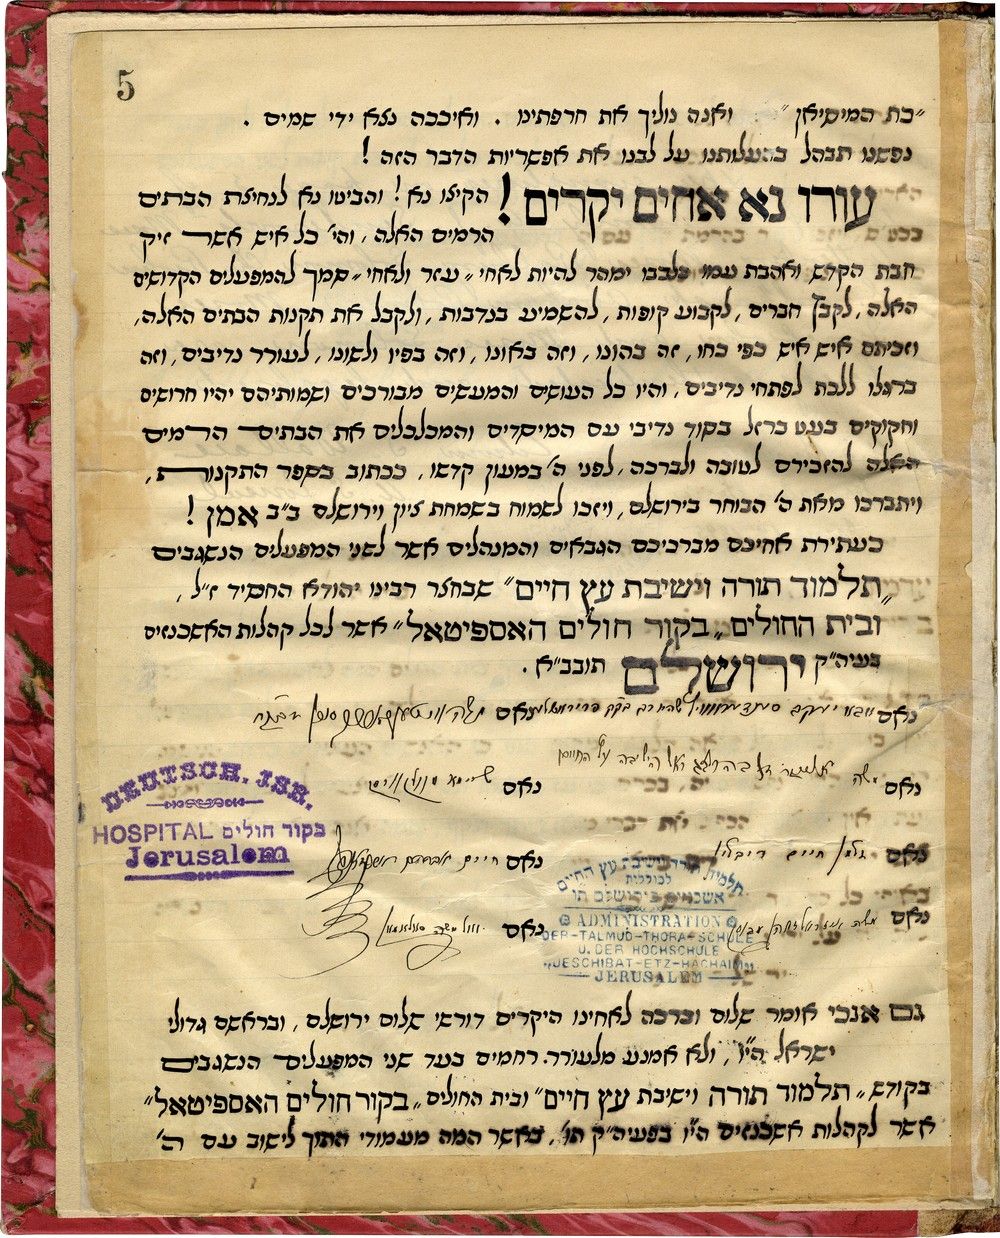 5
"כת המיסיאן" ואנה נוליך את חרפתינו . ואיככה נצא ידי שמים .
נפשנו תבהל בהעלותנו על לבנו את אפשריות הדבר הזה !
עורו נא אחים יקרים ! הקיצו נא ! והביטו נא לנחיצת הבתים
הרמים האלה, והי' כל איש אשר זיק
חבת הקדש ואהבת עמו בלבבו ימהר להיות לאחי "עזר ולאחי" סמך להמפעלים הקדושים
האלה, לקבץ חברים, לקבוע קופות, להשמיע בנדבות, ולקבל את תקנות הבתים האלה,
וזכיתם איש איש כפי כחו, זה בהונו, וזה באונו, וזה בפיו ולשונו, לעורר נדיבים, וזה
ברגלו ללכת לפתחי נדיבים, והיו כל העושים והמעשים מבורכים ושמותיהם יהיו חרושים
וחקוקים בעט ברזל בסוד נדיבי עם המיסדים והמכלכלים את הבתים הרמים
האלה להזכירם לטובה ולברכה, לפני ה' במעון קדשו, ככתוב בספר התקנות,
ויתברכו מאת ה' הבוחר בירושלם, ויזכו לשמוח בשמחת ציון וירושלם ב"ב אמן !
כעתירת אחיכם מברכיכם הגבאים והמנהלים אשר לשני המפעלים הנשגבים
"תלמוד תורה וישיבת עץ חיים" שבחצר רבינו יהודא החסיד ז"ל,
ובית החולים "בקור חולים האספיטאל" אשר לכל קהלות האשכנזים
בעיה"ק ירושלם תובב"א .
נאם
נאם משה
נאם שיימא
נאם זלמן חיים ריבלין
נאם חיים אברהם
נאם משה
נאם
DEUTSCH. ISR.
HOSPITAL בקור חולים
Jerusalem
תלמוד תורה וישיבת עץ החיים
לכוללות
אשכנזים בירושלם תו
ADMINISTRATION
DER-TALMUD-THORA-SCHULE
U. DER HOCHSCHULE
JESCHIBAT-ETZ-HACHAIM
JERUSALEM
גם אנכי אומר שלום וברכה לאחינו היקרים דורשי שלום ירושלם, ובראשם גדולי
ישראל הי"ו, ולא אמנע מלעורר רחמים בעד שני המפעלים הנשגבים
בקודש "תלמוד תורה וישיבת עץ חיים" ובית החולים "בקור חולים האספיטאל"
אשר לקהלות אשכנזים הי"ו בפעיה"ק תו', באשר המה מעמודי התוך לישוב עם ה'